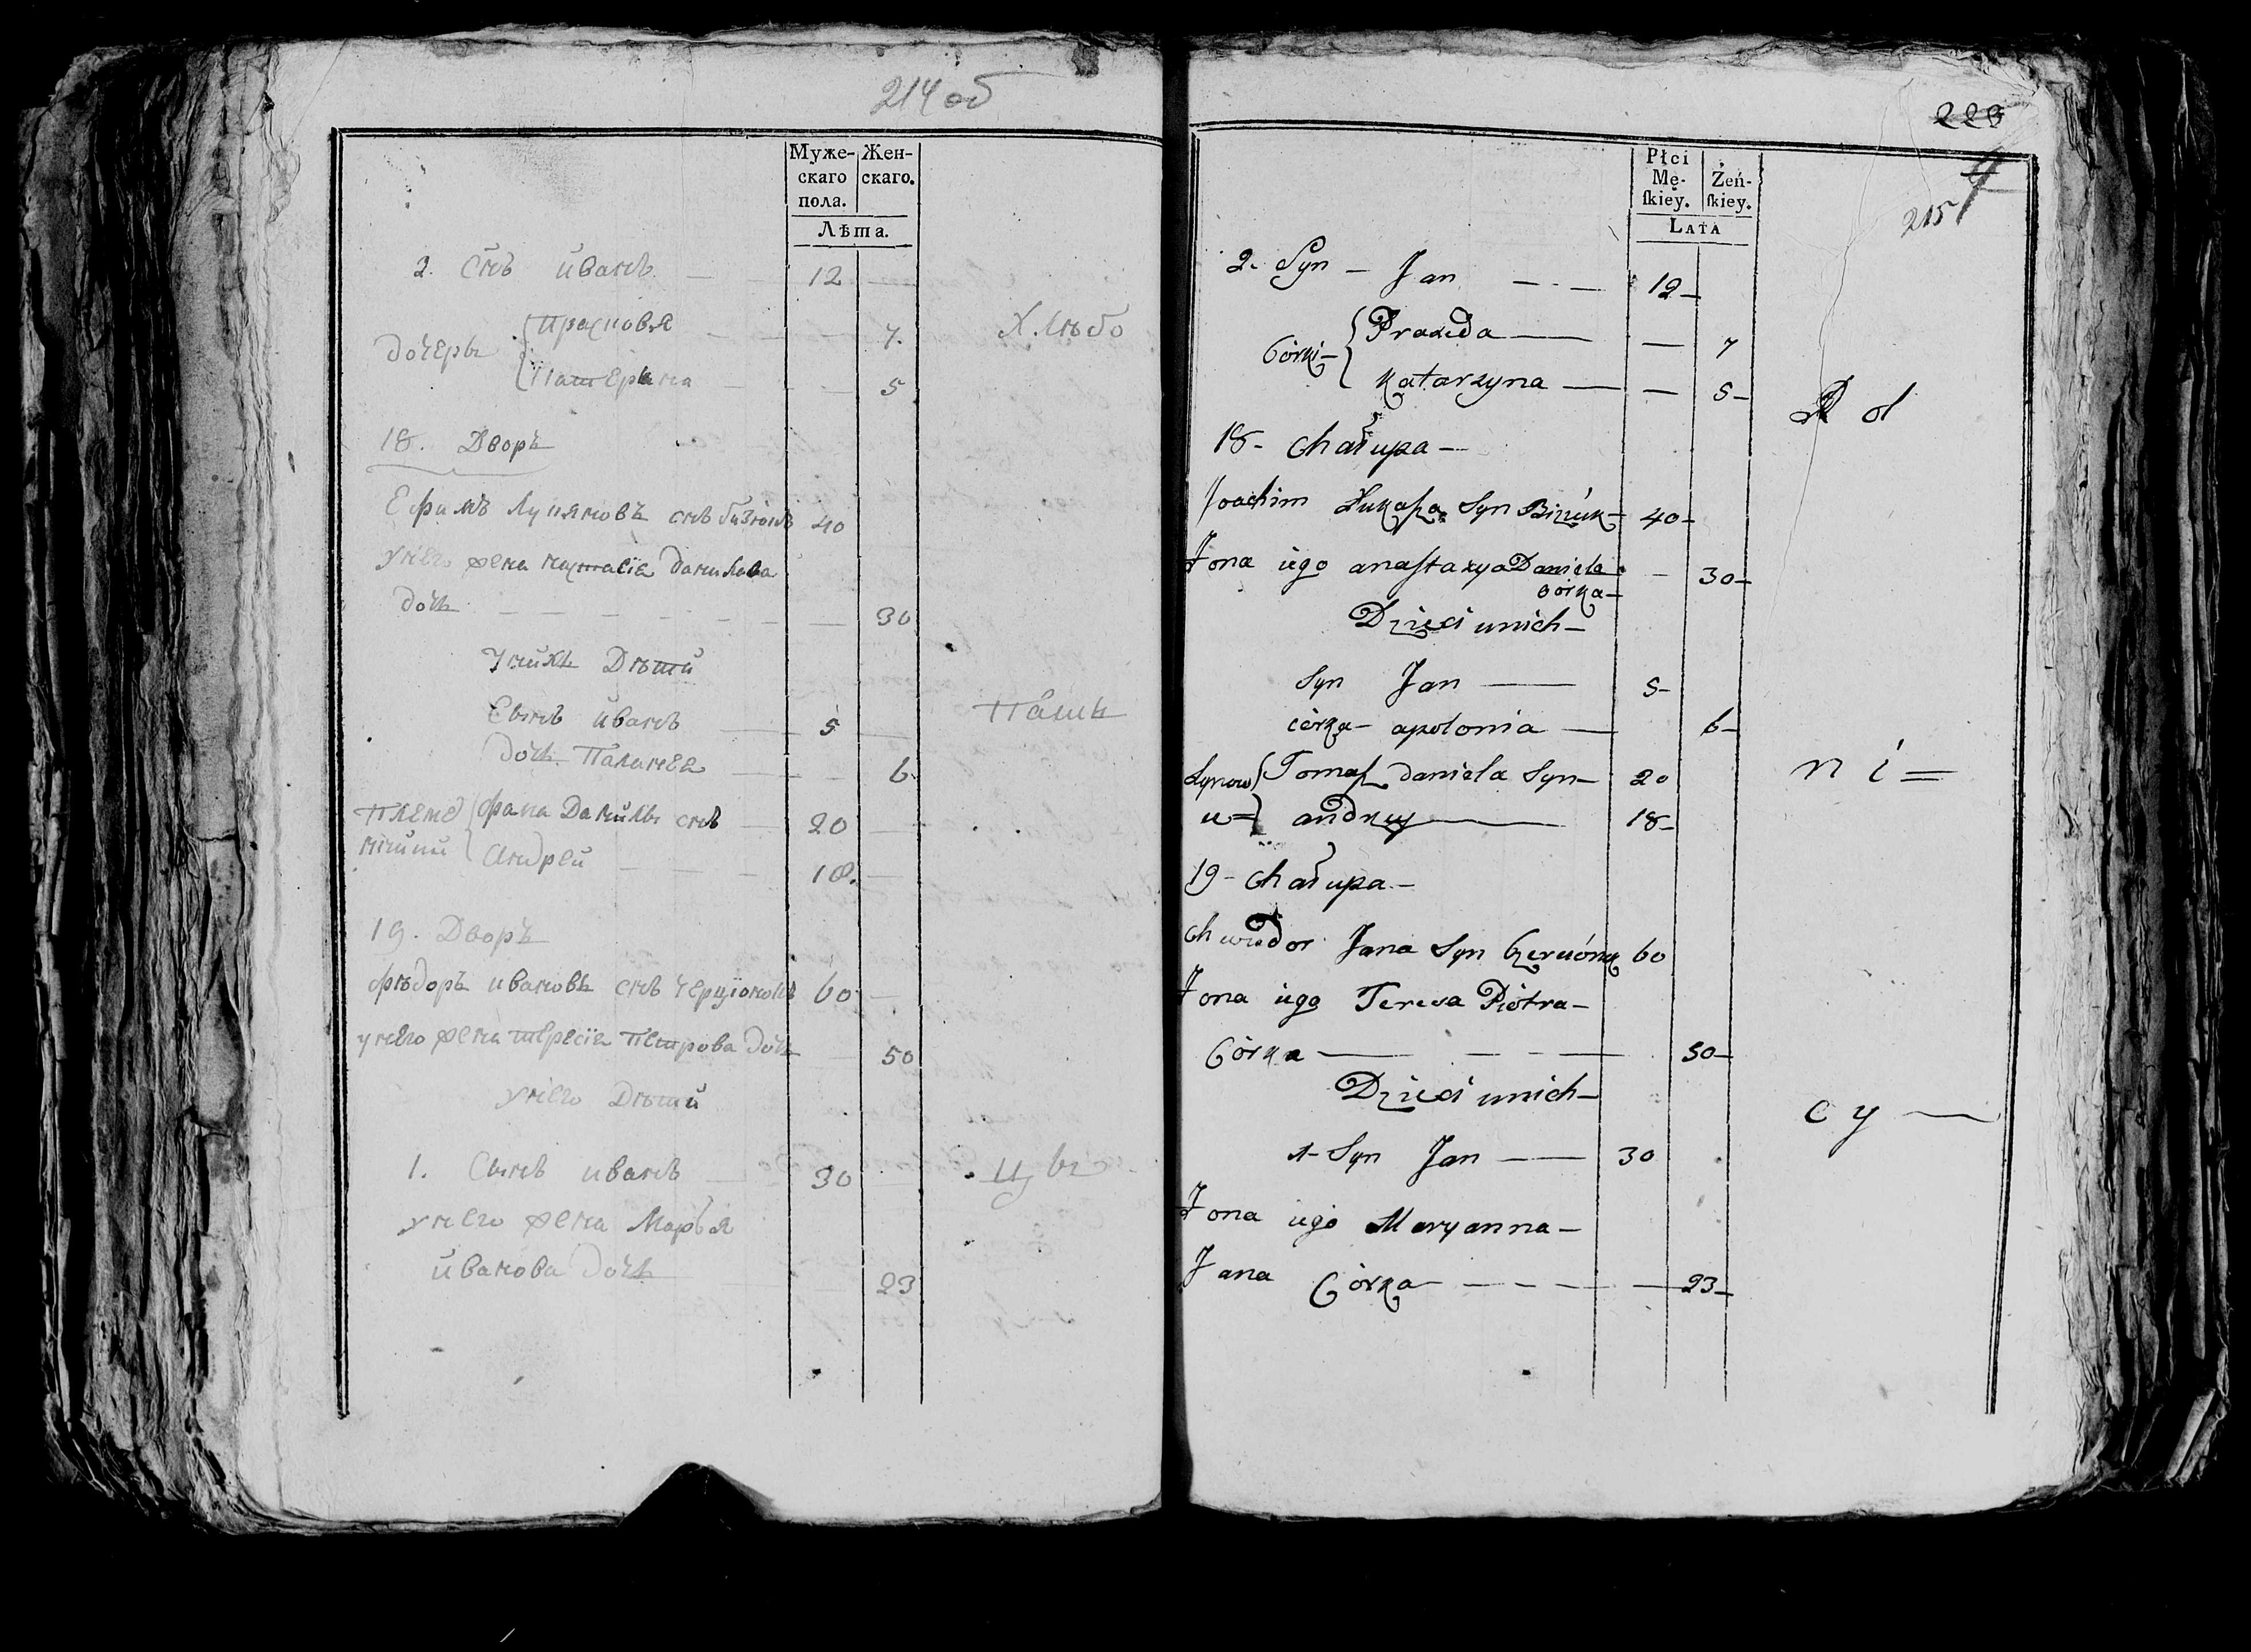 214 об
Муже- Жен-
скаго скаго.
пола.
Лѣта.
2. Снъ иванъ — 12 —
дочеры Прасковѣя — — 7. Хлѣбо
Катерына — — 5
18. Дворъ
Ефимъ Лукяновъ снъ бизюкъ 40
унего жена настасіа данилова
дочь — — 30
унихъ Дѣти
Сынъ иванъ — 5 — Пашь
дочь Палинеа — — 6
Племе Фама Данилы снъ — 20 —
ніики Андрей — 18. —
19. Дворъ
Фѣдоръ ивановъ снъ черціонокъ 60 —
унего жена тересіа Петрова дочь — 50
унего Дѣти
1. Сынъ иванъ — 30 — цы
унего жена Марѣя
иванова дочь — — 23
223
4
215
Płci
Mę- Żeń-
ſkiey. ſkiey.
LATA
2. Syn — Jan — - — 12 —
Córki — Praxeda — — 7
Katarzyna — — 5 —
R ol
18 - Chałupa —
Joachim Łukaſza Syn Biziuk — 40 —
Żona iego anaſtazya Daniela — 30 —
córka —
Dzieci unich —
Syn Jan — 5 —
córka — apolonia — 6 —
Synow Tomaſz daniela Syn — 20
n i =
ie = andrzey — 18 —
19 - Chałupa —
Chwiedor Jana Syn Czerciónek 60
Żona iego Teresa Piotra —
Córka — — - — 50 —
Dzieci unich —
c y —
1 - Syn Jan — 30
Żona iego Maryanna —
Jana Córka — — - — — 23 —